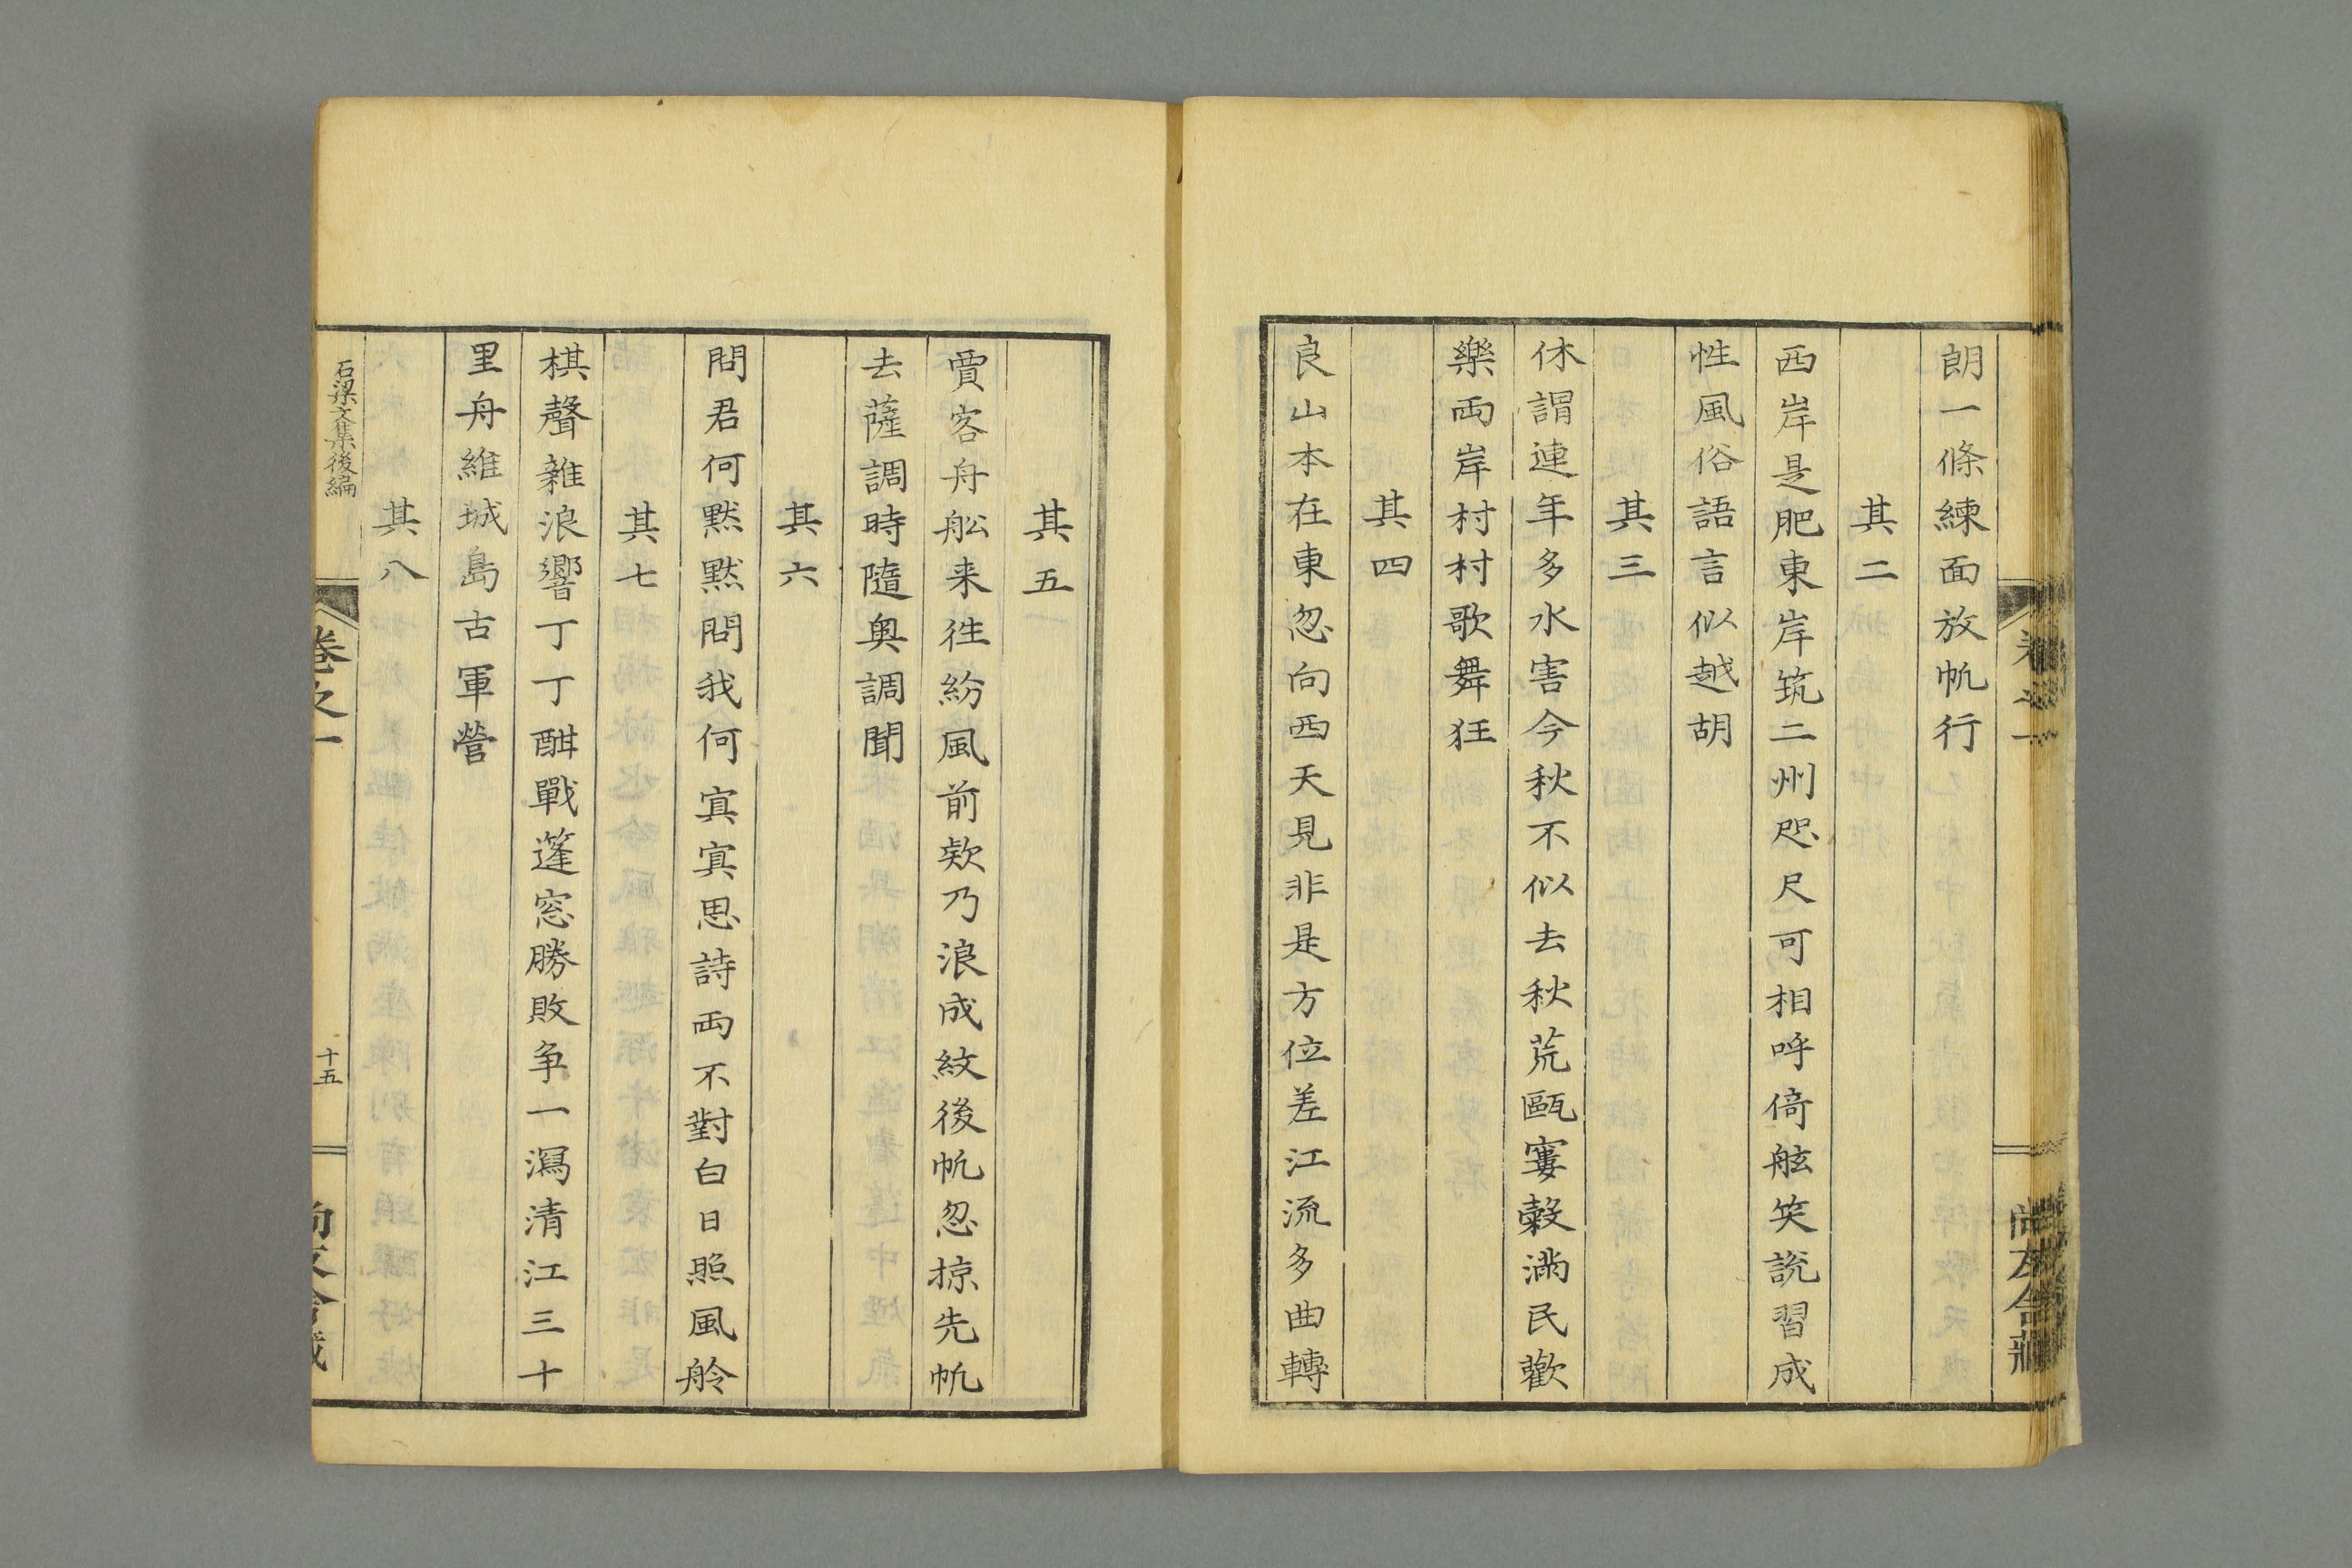 朗一條練面放帆行
其二
西岸是肥東岸筑二州咫尺可相呼倚舷笑說習成
性風俗語言似越胡
其三
休謂連年多水害今秋不似去秋荒甌窶穀滿民歡
樂両岸村村歌舞狂
其四
良山本在東忽向西天見非是方位差江流多曲轉
其五
賈客舟舩来徃紛風前欸乃浪成紋後帆忽掠先帆
去薩調時隨奥調聞
其六
問君何黙黙問我何寘寘思詩両不對白日照風舲
其七
棋聲雜浪響丁丁酣戰篷窓勝敗争一瀉清江三十
里舟維城島古軍營
其八
石梁文集後編
卷之一
十五